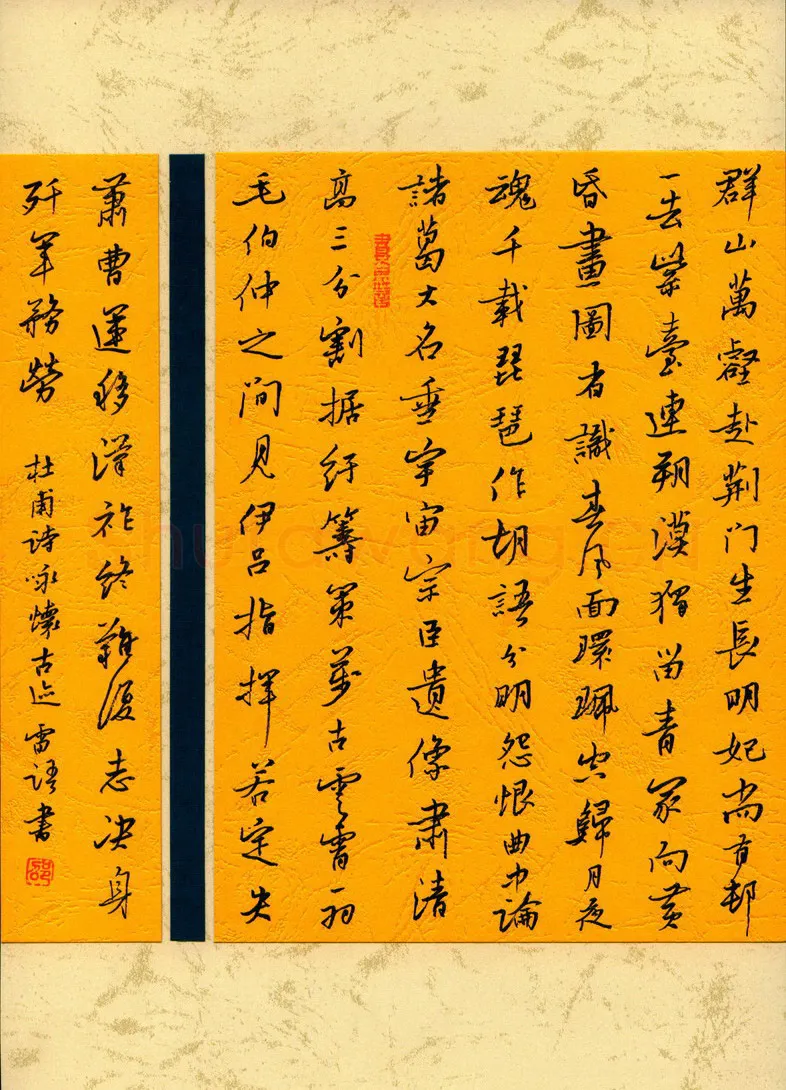 群山萬壑赴荆门生長明妃尚有邨
一去紫臺連朔漠獨留青冢向黄
昏畫圖省識春风面環珮空歸月夜
魂千載琵琶作胡語分明怨恨曲中論
諸葛大名垂宇宙宗臣遺像肅清
高三分割据紆籌策萬古雲霄一羽
毛伯仲之间見伊吕指揮若定失
蕭曹運移漢祚终難復志决身
歼軍務勞
杜甫诗咏懷古迹 雷语書